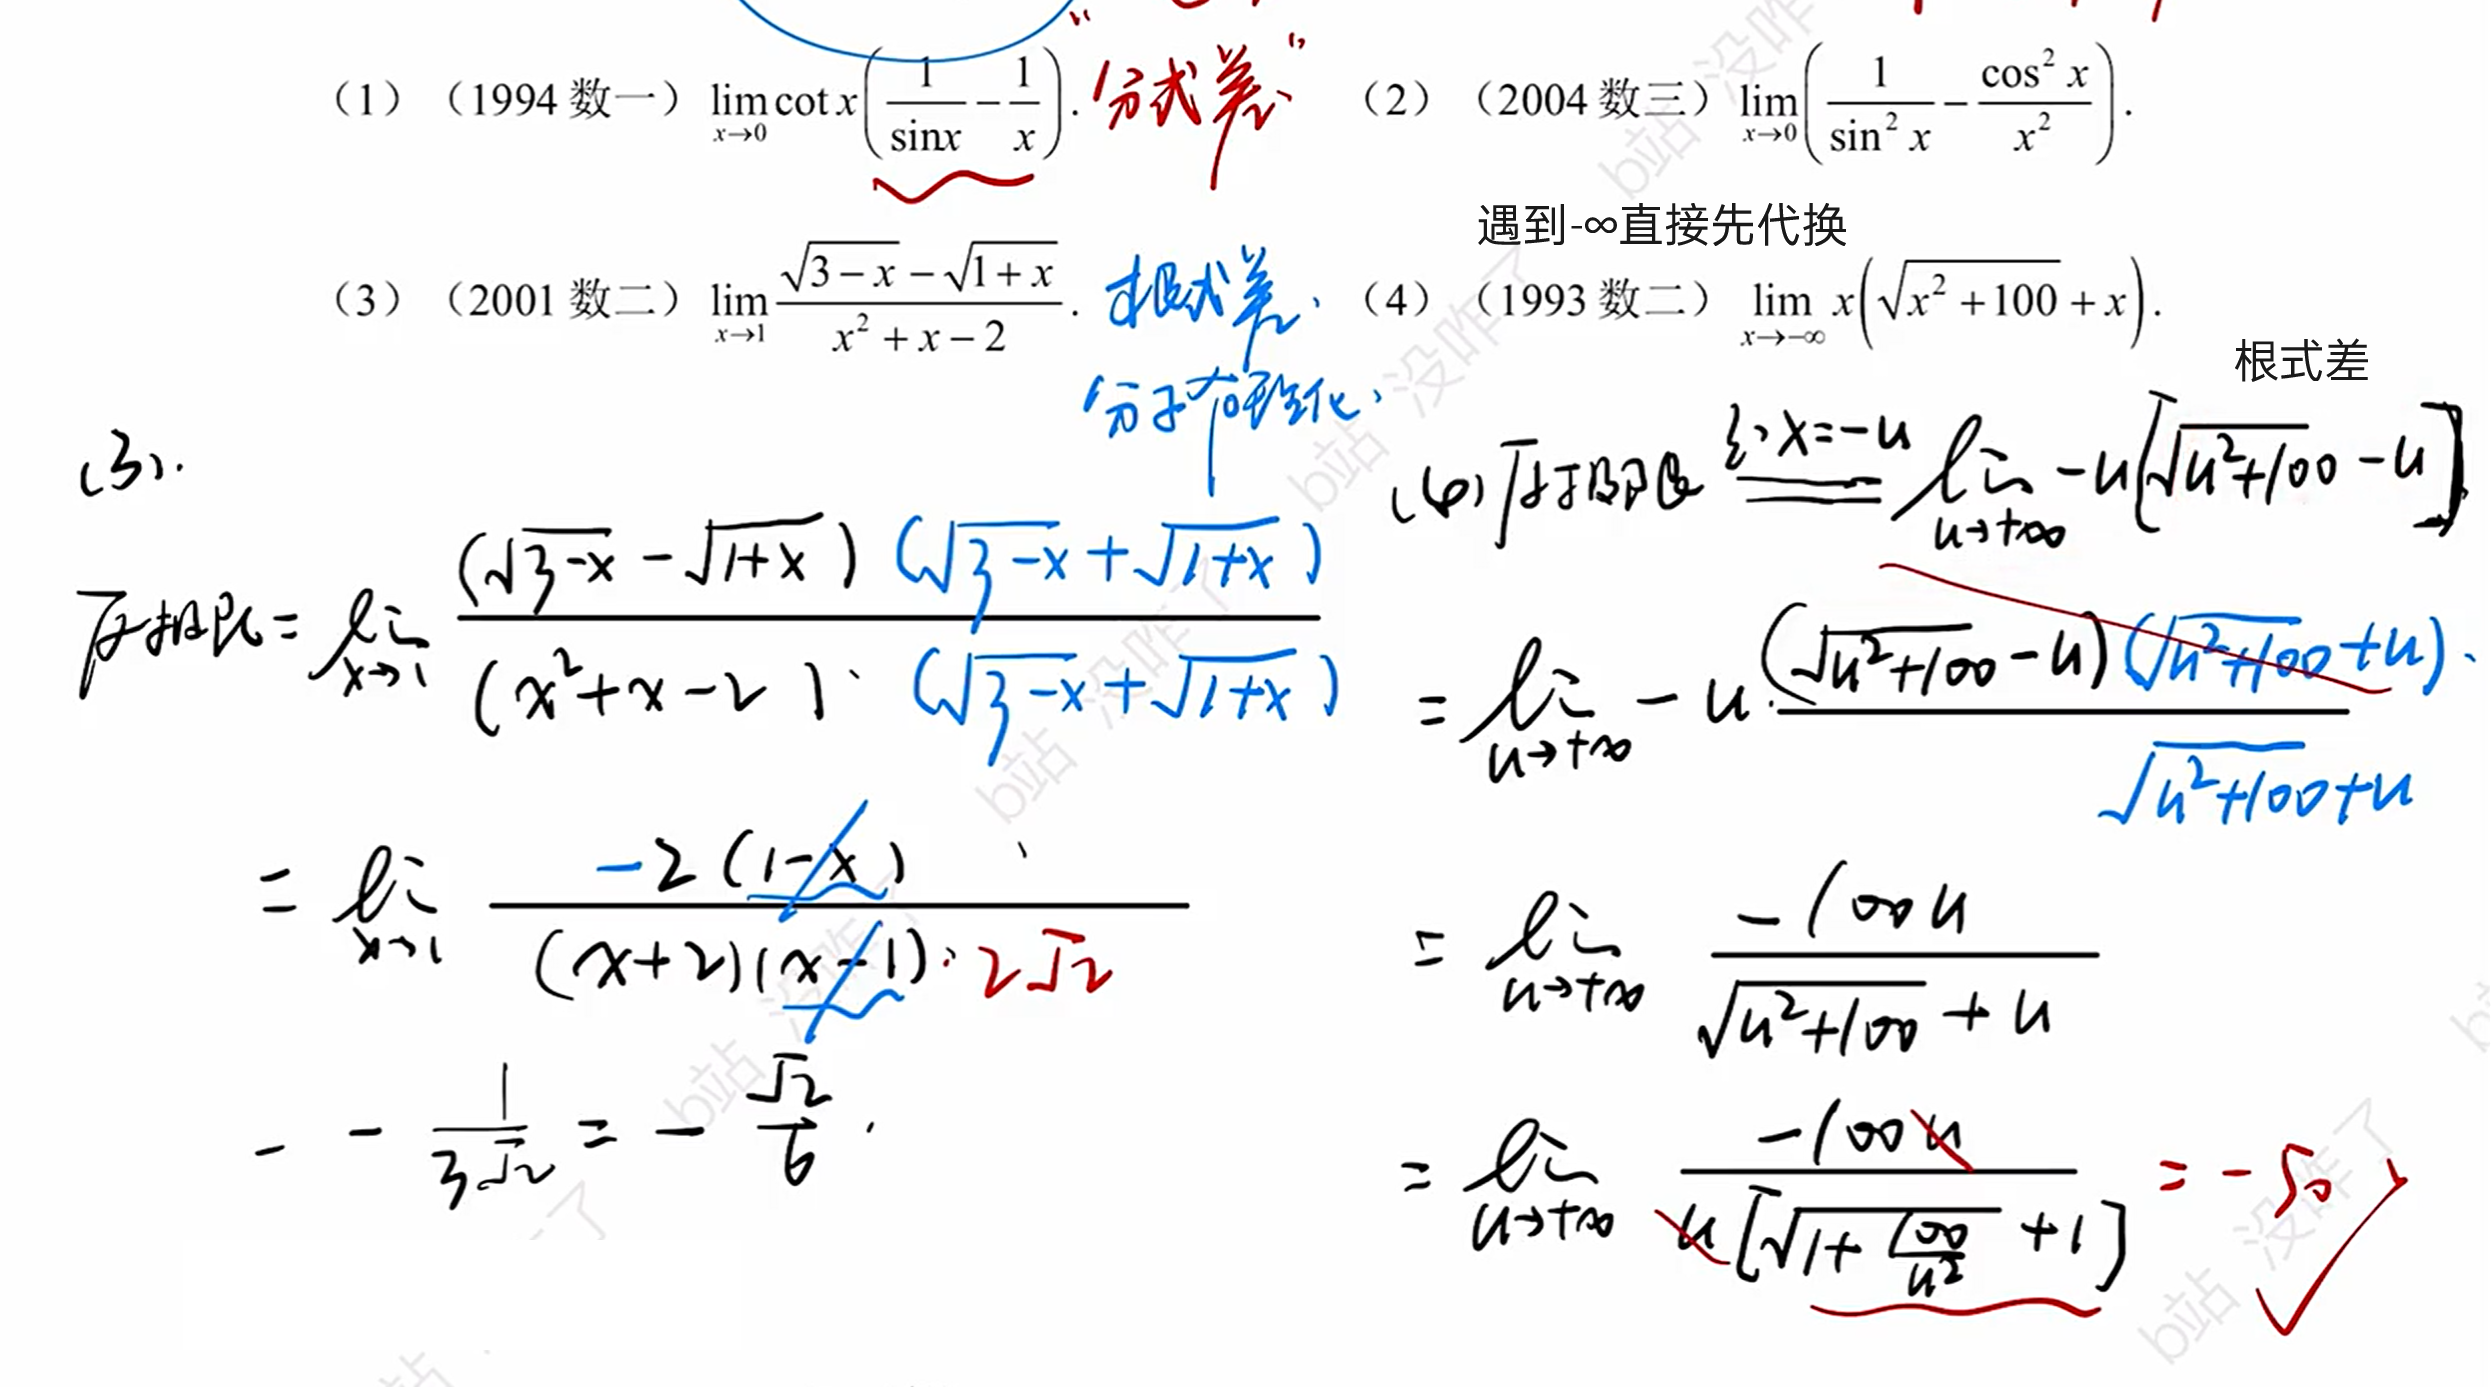 (1) (1994 数一) lim x→0 cot x (1/sinx − 1/x). “分式差”
(2) (2004 数三) lim x→0 (1/sin² x − cos² x/x²).
遇到-∞直接先代换
(3) (2001 数二) lim x→1 (√(3−x) − √(1+x))/(x² + x − 2). 根式差,
分子有理化,
(4) (1993 数二) lim x→−∞ x(√(x² +100) + x).
根式差
(3).
原极限 = lim x→1 (√(3−x) − √(1+x))(√(3−x) + √(1+x)) / (x²+x−2)·(√(3−x) + √(1+x))
= lim x→1 −2(1−x) / (x+2)(x−1)·2√2
− − 1/3√2 = − √2/6 .
(4) 原极限 令x=−u == lim u→+∞ −u[√(u²+100) − u]
= lim u→+∞ −u·(√(u²+100) − u)(√(u²+100) + u) / √(u²+100) + u
= lim u→+∞ −100u / √(u²+100) + u
= lim u→+∞ −100u / u[√(1+100/u²) + 1] = −50
b站 没咋了
b站 没咋了
b站 没咋了
b站 没咋了
b站 没咋了